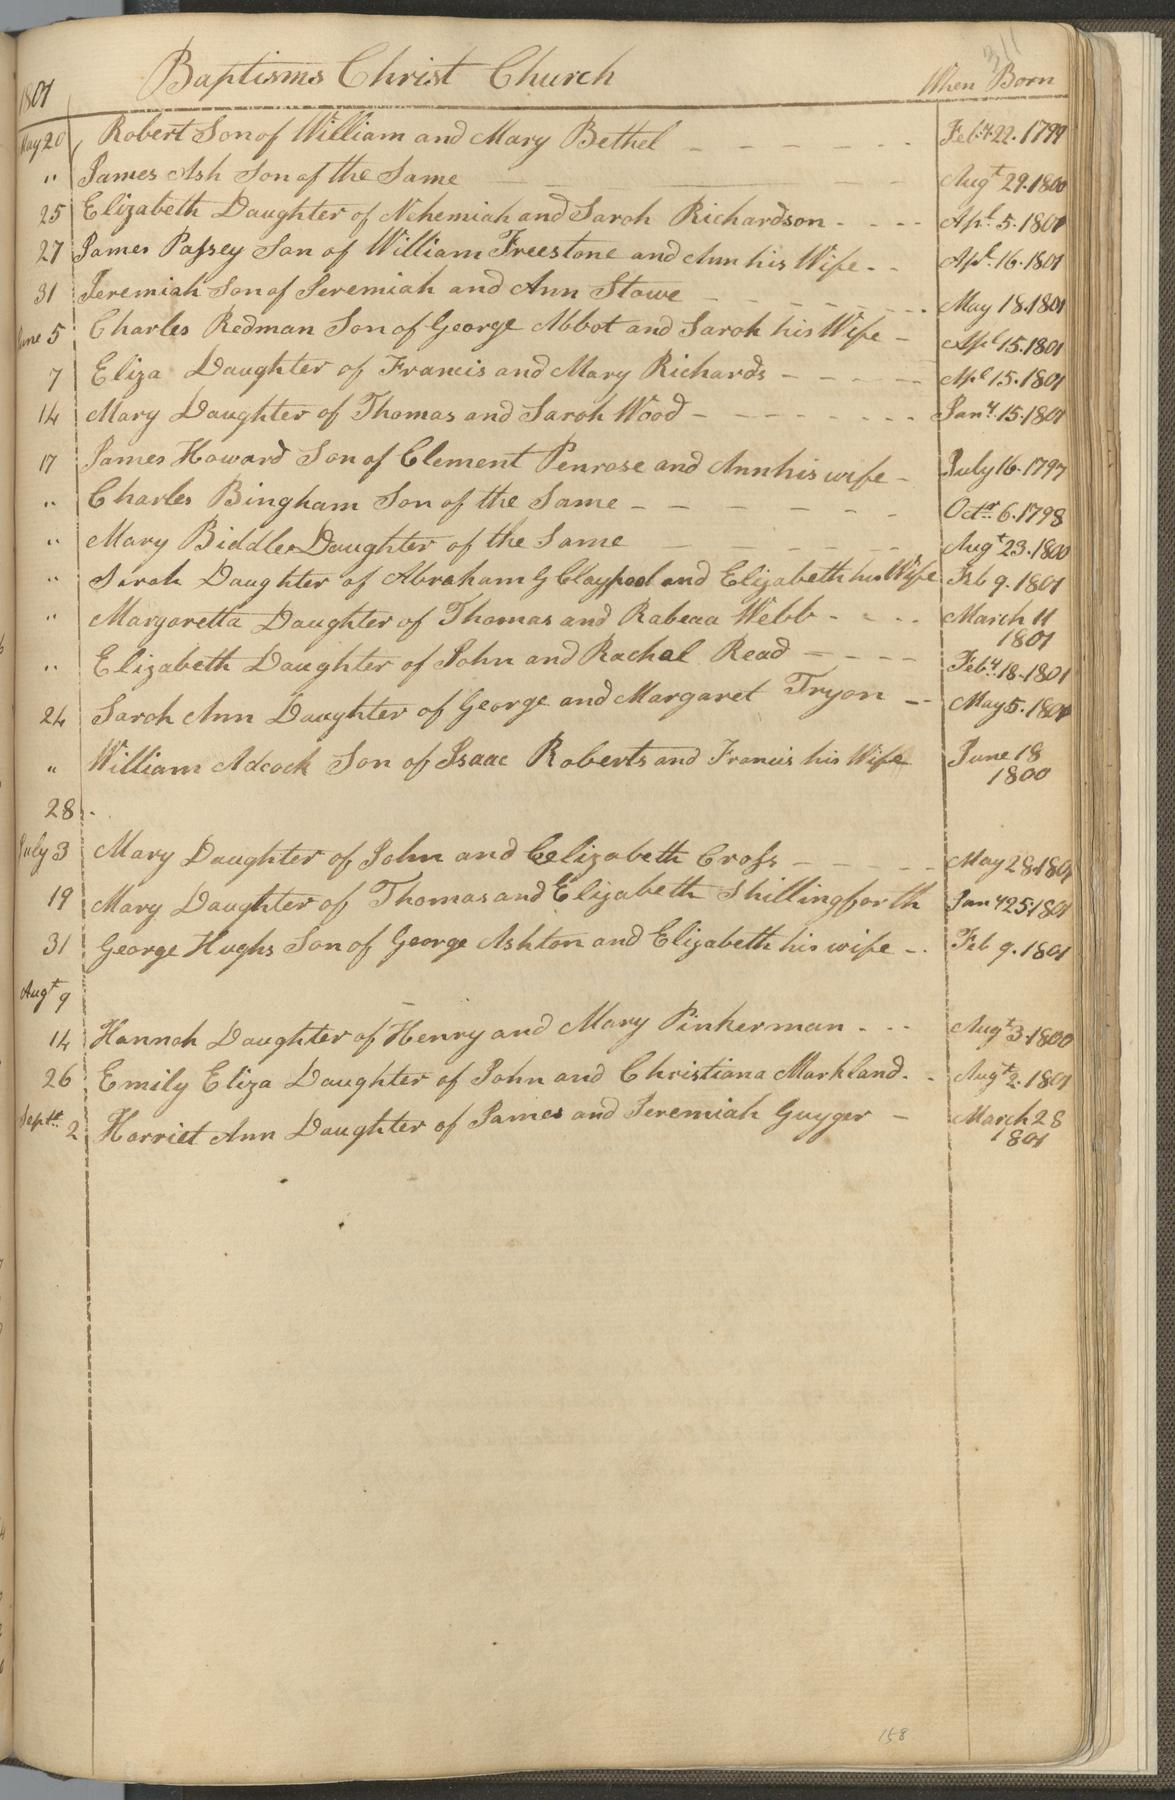 311
1801 Baptisms Christ Church When Born
May 20 Robert Son of William and Mary Bethel - - - - - - Feby. 22. 1799
" James Ash Son of the Same - - - Augt 29. 1800
25 Elizabeth Daughter of Nehemiah and Sarah Richardson - - - - Apl. 5. 1801
27 James Passey Son of William Freestone and Ann his Wife - - Apl. 16. 1801
31 Jeremiah Son of Jeremiah and Ann Stowe - - - - - - May 18. 1801
June 5 Charles Redman Son of George Abbot and Sarah his Wife - Apl 15. 1801
7 Eliza Daughter of Francis and Mary Richards - - - - - Apl 15. 1801
14 Mary Daughter of Thomas and Sarah Wood - - - - - - - - Jany. 15. 1801
17 James Howard Son of Clement Penrose and Ann his wife - July 16. 1797
" Charles Bingham Son of the Same - - - - - - - Octr. 6. 1798
" Mary Biddle Daughter of the Same - - - - - Augt 23. 1800
" Sarah Daughter of Abraham G Claypool and Elizabeth his Wife Feb 9. 1801
" Margaretta Daughter of Thomas and Rabecca Webb - - - - March 11
1801
" Elizabeth Daughter of John and Rachal Read - - - - Feby. 18. 1801
24 Sarah Ann Daughter of George and Margaret Tryon - - May 5. 1801
" William Adcock Son of Isaac Roberts and Francis his Wife June 18
1800
28 -
July 3 Mary Daughter of John and Eelizabeth Cross - - - - - May 28. 1801
19 Mary Daughter of Thomas and Elizabeth Shillingforth Jany 25. 1801
31 George Hughs Son of George Ashton and Elizabeth his wife - . Feb 9. 1801
Augt 9
14 Hannah Daughter of Henry and Mary Pinkerman - - - Augt 3. 1800
26 Emily Eliza Daughter of John and Christiana Markland. - Augt 2. 1801
Sept. 2 Harriet Ann Daughter of James and Jeremiah Guyger - March 28
1801
158